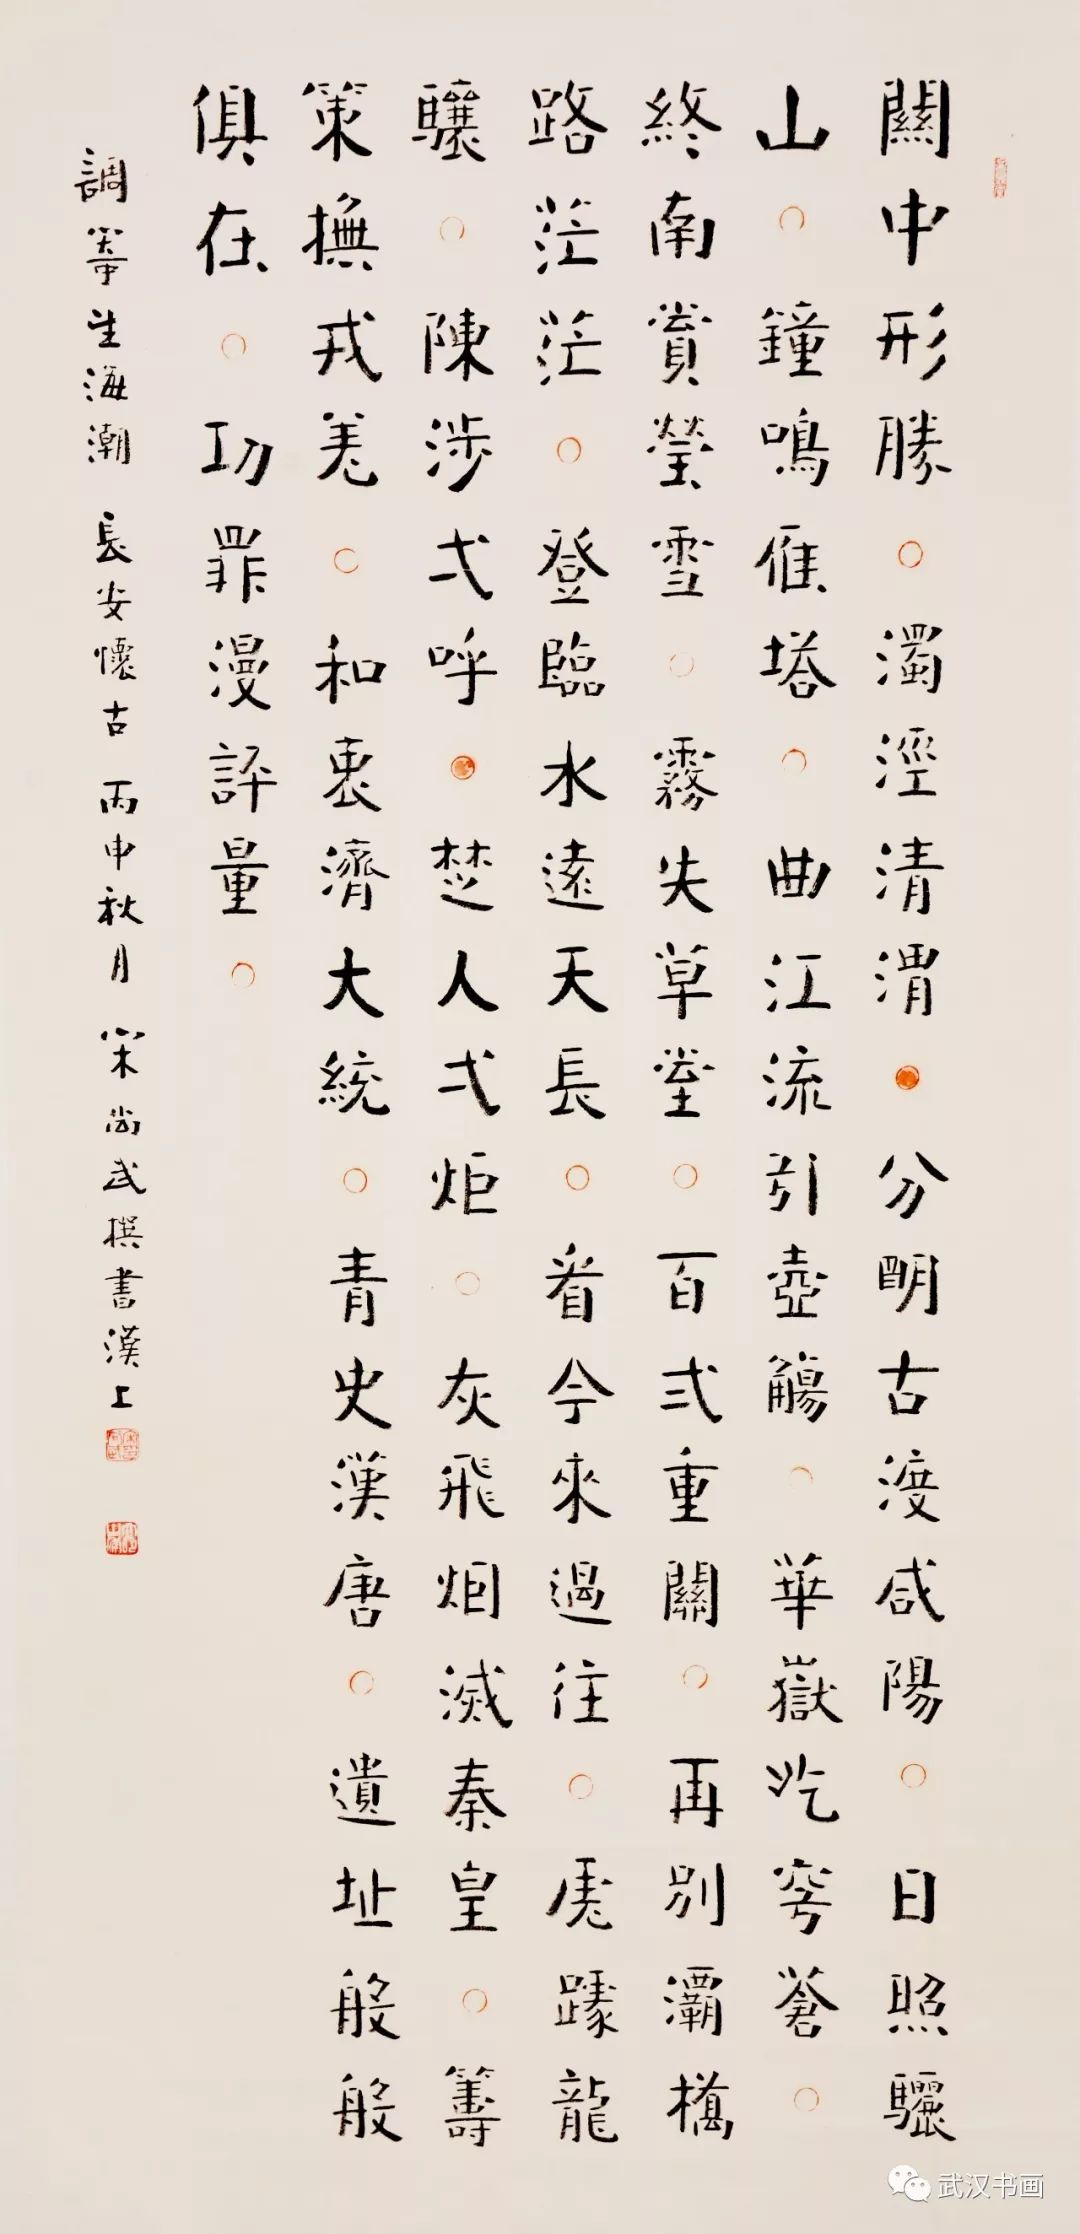 關中形勝濁涇清渭分明古渡咸陽日照驪
山鐘鳴雁塔曲江流引壺觴華嶽屹穹蒼
終南賞瑩雪霧失草堂百弍重關再別灞橋
路茫茫登臨水遠天長看今來過往虎踞龍
驤陳涉弌呼楚人弌炬灰飛烟滅秦皇籌
策撫戎羌和衷濟大統青史漢唐遺址般般
俱在功罪漫評量
調寄望海潮 長安懷古 丙申秋月 宋尚武撰書漢上
武汉书画